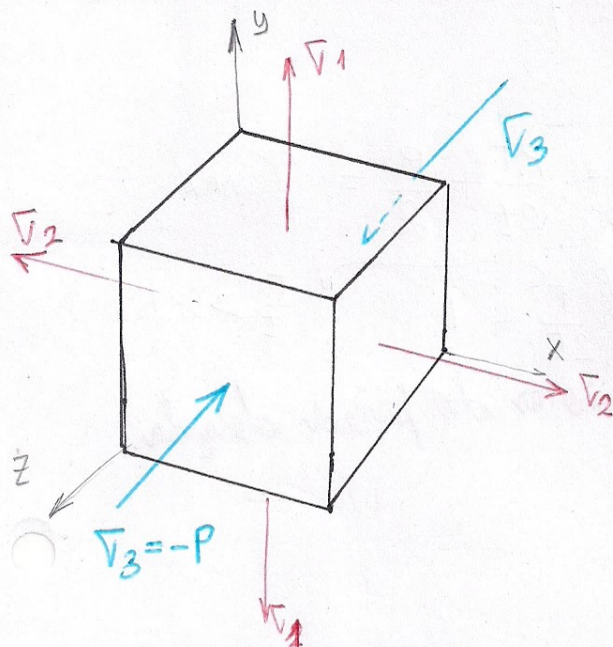 y
σ1
σ3
σ2
x
σ2
z
σ3=-P
σ1